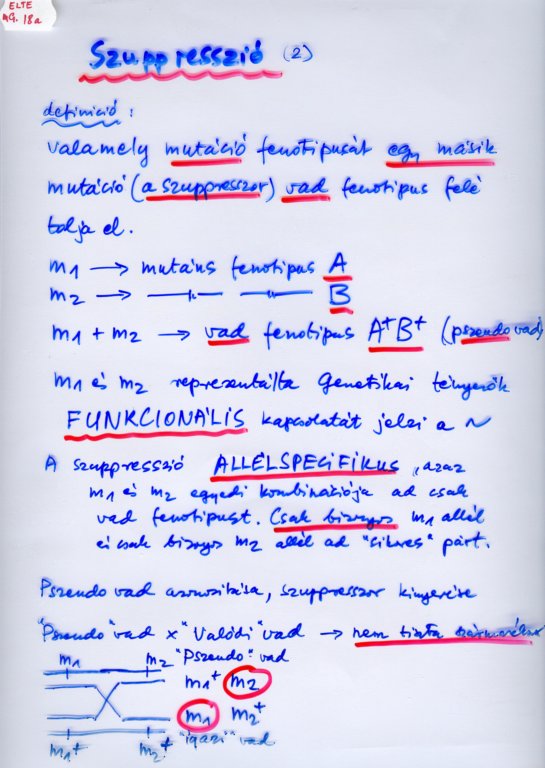 ELTE
MG. 18a
Szuppresszió (2)
definició:
valamely mutáció fenotipusát egy másik
mutáció (a szuppresszor) vad fenotipus felé
tolja el.
m1 → mutáns fenotipus A
m2 → —"— —"— B
m1 + m2 → vad fenotipus A+B+ (pszeudo vad)
m1 és m2 reprezentálta genetikai tényezők
FUNKCIONÁLIS kapcsolatát jelzi a ~
A szuppresszió ALLÉLSPECIFIKUS, azaz
m1 és m2 egyedi kombinációja ad csak
vad fenotipust. Csak bizonyos m1 allél
és csak bizonyos m2 allél ad "sikeres" párt.
Pszeudo vad azonosítása, szuppresszor kinyerése
"Pszeudo" vad x "Valódi" vad → nem tiszta
m1 m2 "Pszeudo" vad
m1+ m2
m1 m2+
m1+ m2+ "igazi" vad